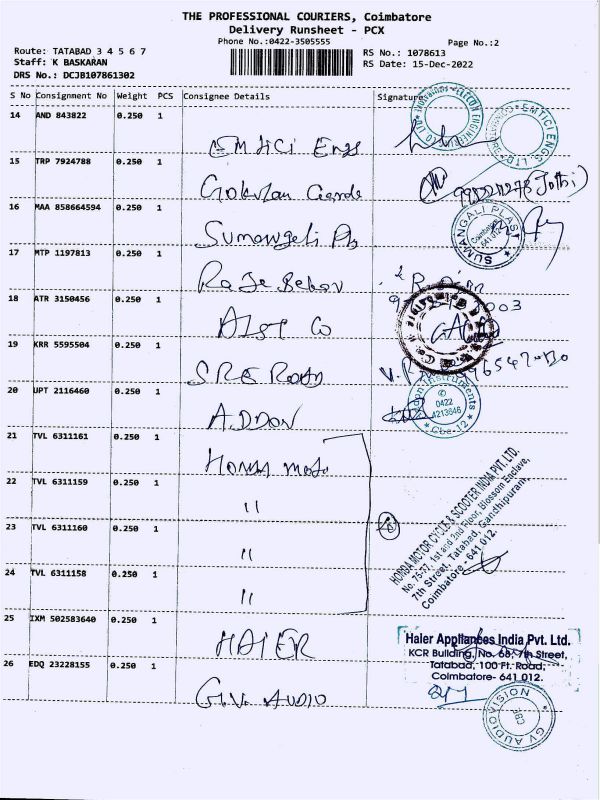 THE PROFESSIONAL COURIERS, Coimbatore
Delivery Runsheet - PCX
Phone No.:0422-3505555
Page No.:2
Route: TATABAD 3 4 5 6 7
Staff: K BASKARAN
DRS No.: DCJB107861302
RS No.: 1078613
RS Date: 15-Dec-2022
S No Consignment No Weight PCS Consignee Details Signature
14 AND 843822 0.250 1 EMTICI Engs
15 TRP 7924788 0.250 1
16 MAA 858664594 0.250 1 Sumangali
17 MTP 1197813 0.250 1
18 ATR 3150456 0.250 1
19 KRR 5595504 0.250 1
20 UPT 2116460 0.250 1 ADDON
21 TVL 6311161 0.250 1 Honda moto
22 TVL 6311159 0.250 1 "
23 TVL 6311160 0.250 1 "
24 TVL 6311158 0.250 1 "
25 IXM 502583640 0.250 1 HAIER
26 EDQ 23228155 0.250 1 G.V. AUDIO
EMTICI ENGS. LTD.
SUMANGALI PLAST
Coimbatore
641 012
Instruments
0422
4213646
Cbe-12
HONDA MOTOR CYCLE & SCOOTER INDIA PVT. LTD.
No. 75-77, 1st and 2nd Floor, Blossom Enclave,
7th Street, Tatabad, Gandhipuram,
Coimbatore - 641 012.
Haler Appliances India Pvt. Ltd.
KCR Building, No. 68, 7th Street,
Tatabad, 100 Ft. Road,
Coimbatore- 641 012.
GV AUDIOVISION
CBE